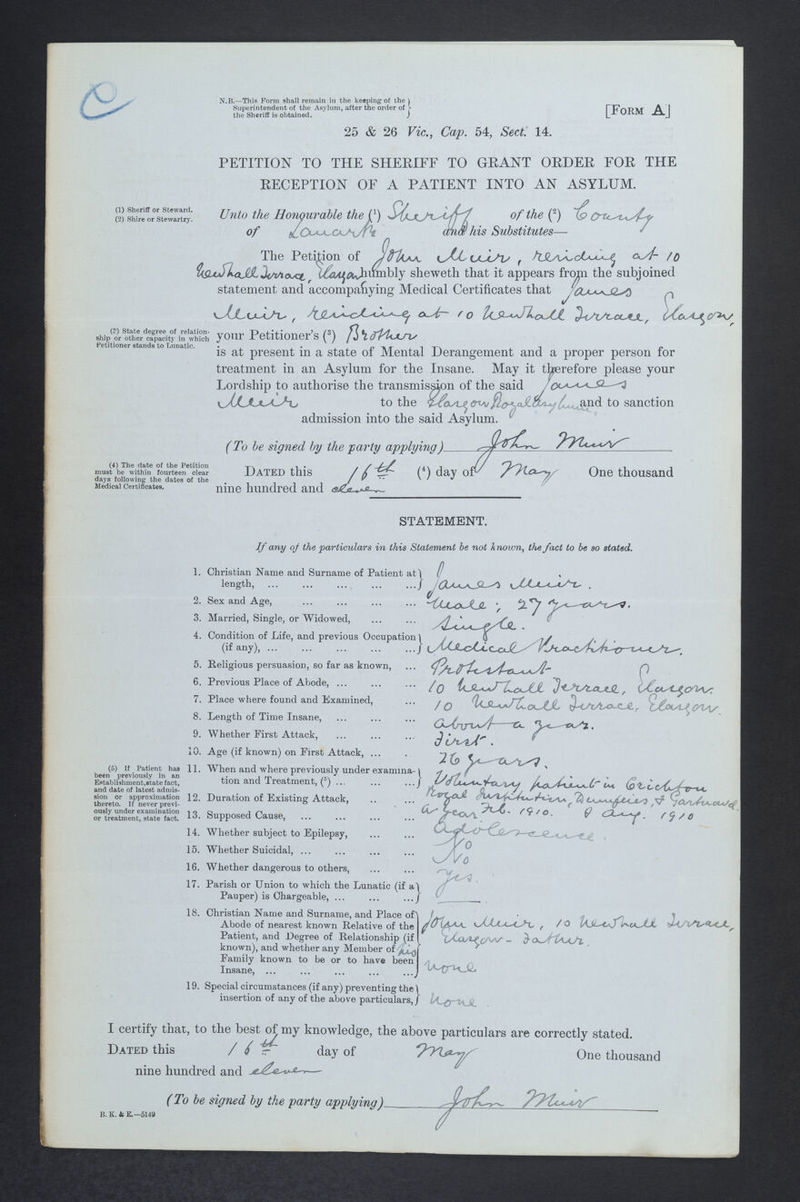 C
N.B.—This Form shall remain in the keeping of the
Superintendent of the Asylum, after the order of
the Sheriff is obtained.
[FORM A]
25 & 26 Vic., Cap. 54, Sect. 14.
PETITION TO THE SHERIFF TO GRANT ORDER FOR THE
RECEPTION OF A PATIENT INTO AN ASYLUM.
(1) Sheriff or Steward.
(2) Shire or Stewartry.
Unto the Honourable the (¹) Sheriff of the (²) County
of Lanark and his Substitutes—
The Petition of John Muir, residing at 10
Newhall Terrace, Glasgow humbly sheweth that it appears from the subjoined
statement and accompanying Medical Certificates that James
Muir, residing at 10 Newhall Terrace, Glasgow,
(3) State degree of relation-
ship or other capacity in which
Petitioner stands to Lunatic.
your Petitioner's (³) Brother
is at present in a state of Mental Derangement and a proper person for
treatment in an Asylum for the Insane. May it therefore please your
Lordship to authorise the transmission of the said James
Muir to the Glasgow Royal Asylum and to sanction
admission into the said Asylum.
(To be signed by the party applying) John Muir
(4) The date of the Petition
must be within fourteen clear
days following the dates of the
Medical Certificates.
DATED this 16th (⁴) day of May One thousand
nine hundred and eleven
STATEMENT.
If any of the particulars in this Statement be not known, the fact to be so stated.
1. Christian Name and Surname of Patient at
length, ... James Muir.
2. Sex and Age, ... Male; 27 years.
3. Married, Single, or Widowed, ... Single.
4. Condition of Life, and previous Occupation
(if any), ... Medical Practitioner.
5. Religious persuasion, so far as known, ... Protestant
6. Previous Place of Abode, ... 10 Newhall Terrace, Glasgow.
7. Place where found and Examined, ... 10 Newhall Terrace, Glasgow.
8. Length of Time Insane, ... About a year.
9. Whether First Attack, ... First.
10. Age (if known) on First Attack, ... 26 years.
(5) If Patient has
been previously in an
Establishment, state fact,
and date of latest admis-
sion or approximation
thereto. If never previ-
ously under examination
or treatment, state fact.
11. When and where previously under examina-
tion and Treatment, (⁵) ... Voluntary patient in Crichton
Royal Institution, Dumfries, & Gartnavel
12. Duration of Existing Attack, ... A year Feb. 1910. & Aug. 1910
13. Supposed Cause, ... Adolescence.
14. Whether subject to Epilepsy, ... No
15. Whether Suicidal, ... No
16. Whether dangerous to others, ... Yes.
17. Parish or Union to which the Lunatic (if a
Pauper) is Chargeable, ... —
18. Christian Name and Surname, and Place of
Abode of nearest known Relative of the
Patient, and Degree of Relationship (if
known), and whether any Member of his
Family known to be or to have been
Insane, ...
John Muir, 10 Newhall Terrace,
Glasgow - Father.
None
19. Special circumstances (if any) preventing the
insertion of any of the above particulars, None.
I certify that, to the best of my knowledge, the above particulars are correctly stated.
DATED this 16th day of May One thousand
nine hundred and eleven
(To be signed by the party applying) John Muir
B. K. & E.—5149